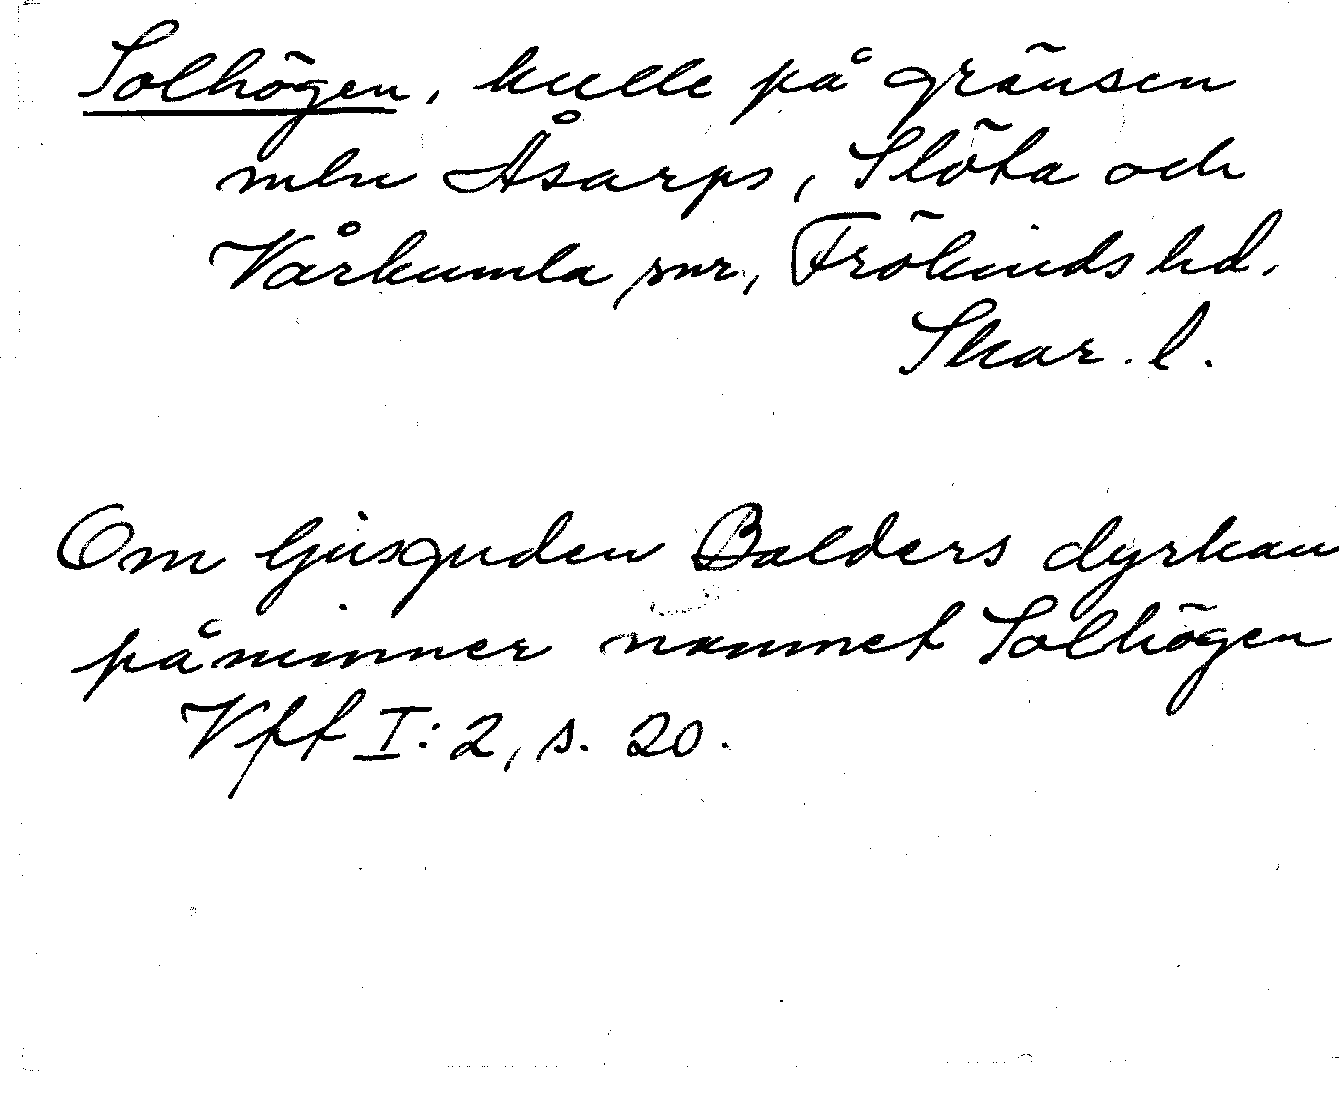 Solhögen, kulle på gränsen
mln Åsarps, Slöta och
Vårkumla snr, Frökinds hd.
Skar. l.
Om ljusguden Balders dyrkan
påminner namnet Solhögen
Vff I:2, s. 20.